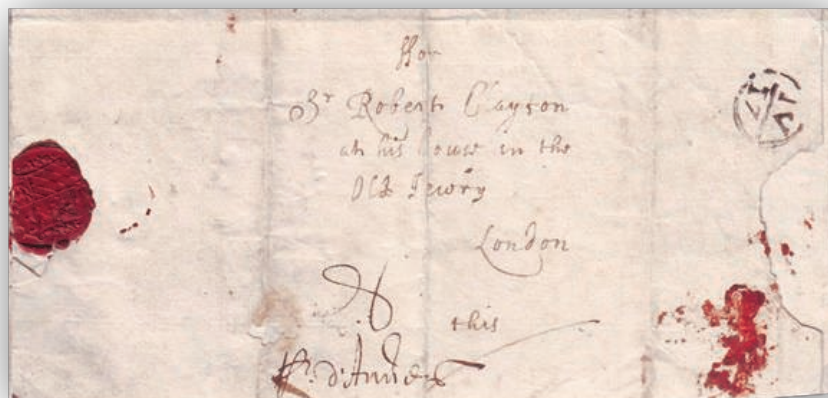 ffor
Sr Robert Clayton
at his house in the
Old Jewry
London
this